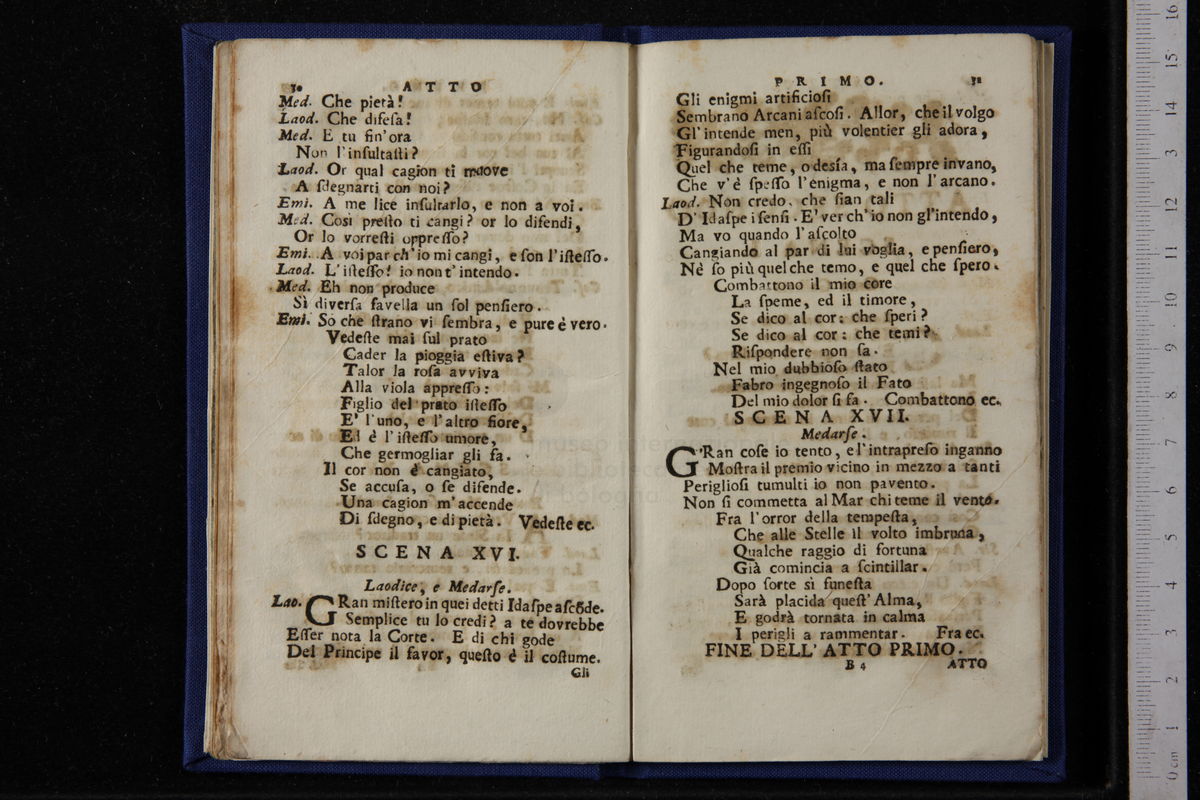 30 ATTO
Med. Che pietà!
Laod. Che difeſa!
Med. E tu fin'ora
Non l'inſultaſti?
Laod. Or qual cagion ti muove
A ſdegnarti con noi?
Emi. A me lice inſultarlo, e non a voi.
Med. Così preſto ti cangi? or lo difendi,
Or lo vorreſti oppreſſo?
Emi. A voi par ch'io mi cangi, e ſon l'iſteſſo.
Laod. L'iſteſſo! io non t'intendo.
Med. Eh non produce
Sì diverſa favella un ſol penſiero.
Emi. So che ſtrano vi ſembra, e pure è vero.
Vedeſte mai ſul prato
Cader la pioggia eſtiva?
Talor la roſa avviva
Alla viola appreſſo:
Figlio del prato iſteſſo
E' l'uno, e l'altro fiore,
Ed è l'iſteſſo umore,
Che germogliar gli fa.
Il cor non è cangiato,
Se accuſa, o ſe difende.
Una cagion m'accende
Di ſdegno, e di pietà. Vedeſte ec.
SCENA XVI.
Laodice, e Medarſe.
Lao. GRan miſtero in quei detti Idaſpe aſcõde.
Semplice tu lo credi? a te dovrebbe
Eſſer nota la Corte. E di chi gode
Del Principe il favor, queſto è il coſtume.
Gli
PRIMO. 31
Gli enigmi artificioſi
Sembrano Arcani aſcoſi. Allor, che il volgo
Gl'intende men, più volentier gli adora,
Figurandoſi in eſſi
Quel che teme, o desía, ma ſempre invano,
Che v'è ſpeſſo l'enigma, e non l'arcano.
Laod. Non credo, che ſian tali
D'Idaſpe i ſenſi. E' ver ch'io non gl'intendo,
Ma vo quando l'aſcolto
Cangiando al par di lui voglia, e penſiero,
Nè ſo più quel che temo, e quel che ſpero.
Combattono il mio core
La ſpeme, ed il timore,
Se dico al cor: che ſperi?
Se dico al cor: che temi?
Riſpondere non ſa.
Nel mio dubbioſo ſtato
Fabro ingegnoſo il Fato
Del mio dolor ſi fa. Combattono ec.
SCENA XVII.
Medarſe.
G'Ran coſe io tento, e l'intrapreſo inganno
Moſtra il premio vicino in mezzo a tanti
Periglioſi tumulti io non pavento.
Non ſi commetta al Mar chi teme il vento.
Fra l'orror della tempeſta,
Che alle Stelle il volto imbruna,
Qualche raggio di fortuna
Già comincia a ſcintillar.
Dopo ſorte sì funeſta
Sarà placida queſt'Alma,
E godrà tornata in calma
I perigli a rammentar. Fra ec.
FINE DELL'ATTO PRIMO.
B 4 ATTO